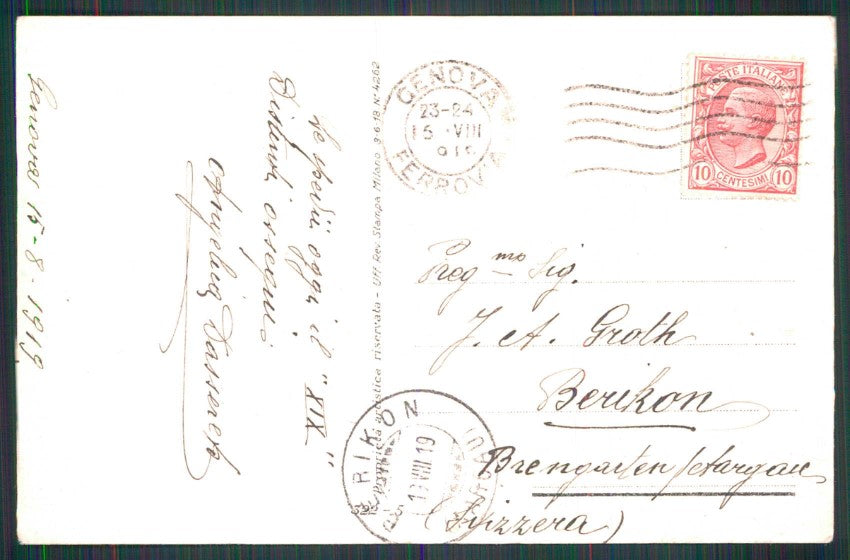 Genova 15-8-1919
Le spedii oggi il "XIX"
Distinti ossequi
Angelina
Proprietà artistica riservata - Uff. Rev. Stampa Milano 3-6-18 N. 4262
GENOVA
23-24
15 VIII
FERROVIA
POSTE ITALIANE
10 CENTESIMI 10
Preg.mo Sig.
J. A. Groth
Berikon
Bremgarten /Aargau
(Svizzera)
BERIKON
VIII 19